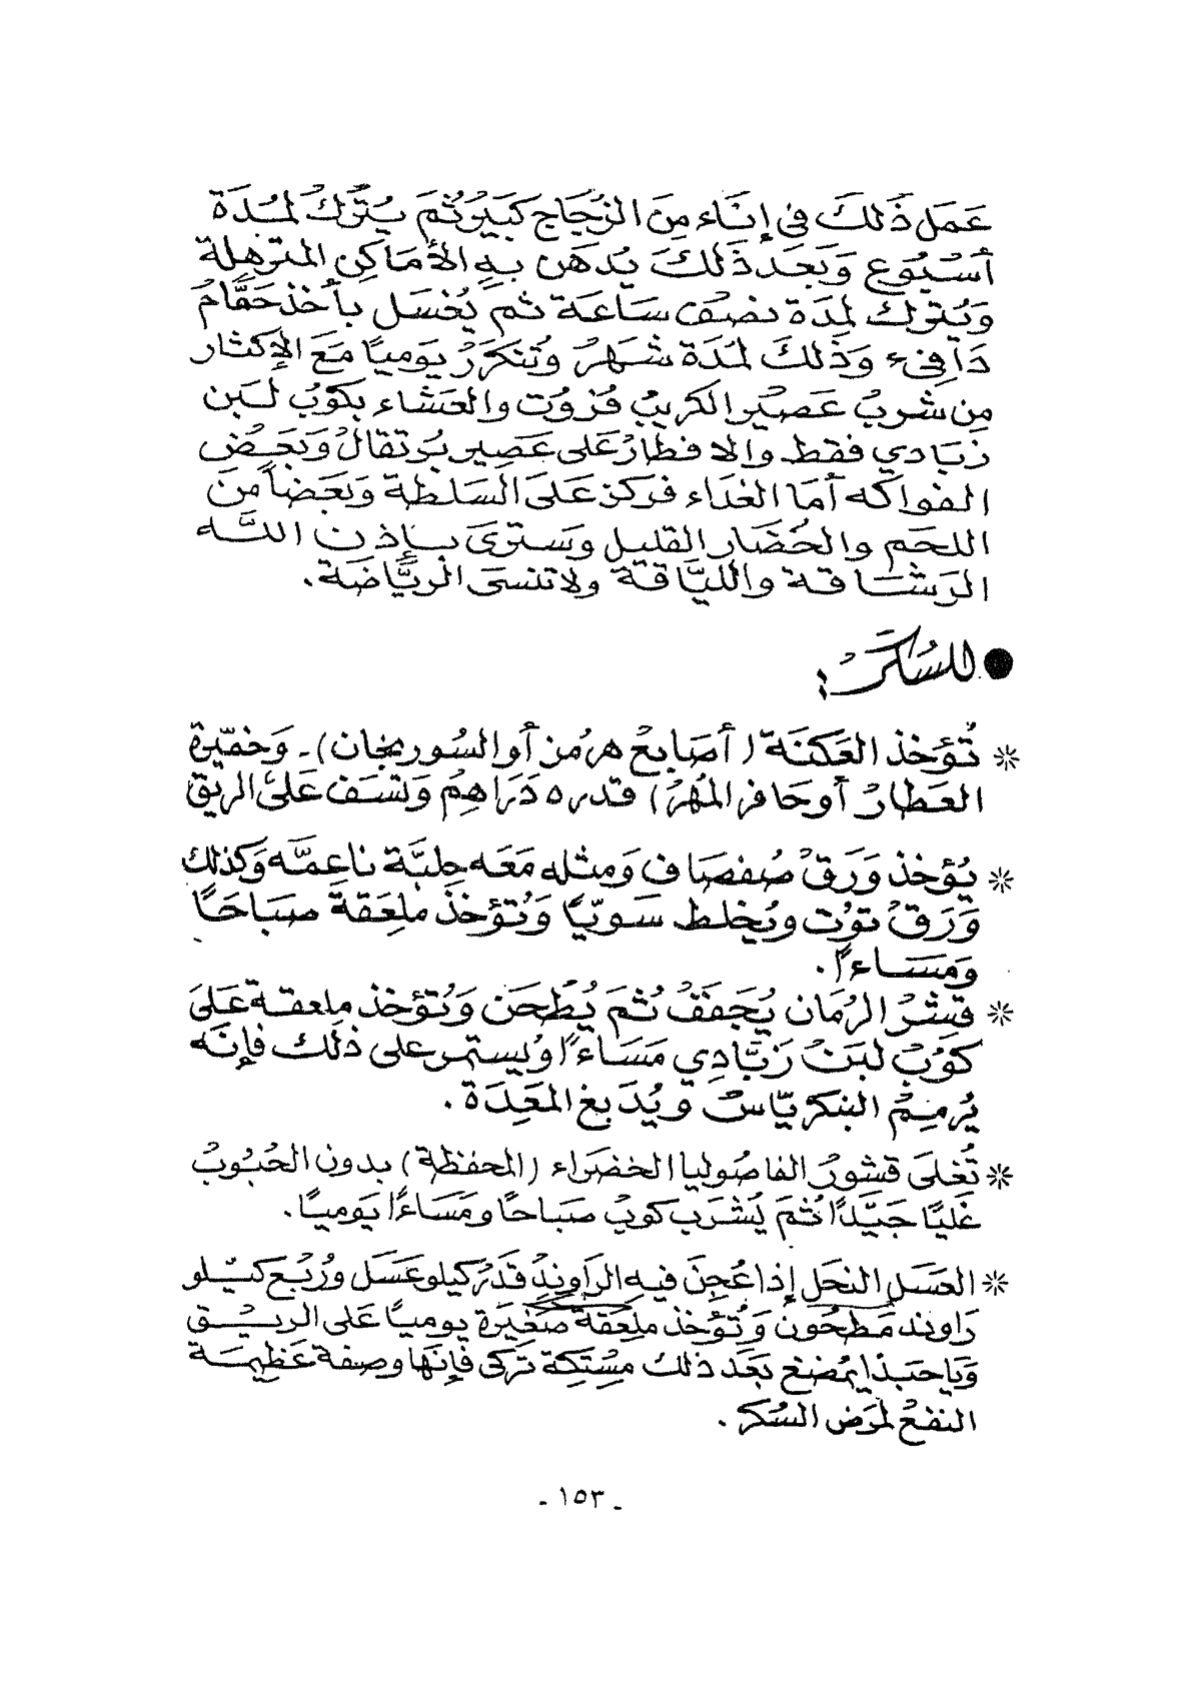 عَمَل ذَلكَ فى إنَاء مِنَ الزُجَاج كَبيَرْ ثُمَ يُترَكُ لمُدَة
أسْبُوَع وَبَعَد ذَلكَ يُدهَن بهِ الأمَاكِن المترهِلة
وَيُترك لمِدَة نصُف سَاعَة ثم يُغسَل بأخذ حَمَّامُ
دَافِىء وَذَلكَ لمُدَة شهَرُ وتُتكَرَرُ يَوميًا مَعَ الإكثار
مِن شربُ عَصيُر الكريبُ فرُوُت والعَشاء بكوُبُ لبَن
زبَادي فقط والافطارُ عَلى عَصِير بُرتقالُ وَبَعَضُ
الفواكَه أمَا الغدَاء فركز عَلىَ السَلطة وَبَعَضاً منَ
اللحَم والخُضَار القليل وَسَترىَ بإذن اللَّه
الرَشَاقة واللَّياقة ولاتنسَى الريَّاضَة.
● للسُكَرْ:
* تُؤخذ العَكنَة (أصَابعُ هرمُز أو السُورنجان) - وَخمّيرة
العَطارُ أوحَافر المُهرُ) قدره دَرَاهِمُ وَتسَف عَلىَ الريق
* يُؤخذ وَرَقْ صُفصَاف وَمثله مَعَه حلبَّة ناعمَّه وَكذلك
وَرَقُ توُت ويُخلط سَويّا وَتُؤخذ ملعَقة صَبَاحَاً
وَمَسَاءاً.
* قشرُ الرُمَان يُجَفَفُ ثُمَ يُطحَن وَتُؤخذ ملعقة عَلىَ
كوُبُ لبَنُ زبَّادِي مَسَاءاً ويُستمر على ذلك فإنَه
يُرممُ البنكريّاسُ ويُدَبغ المعَدَة.
* تُغلىَ قشورُ الفاصُوليا الخضَراء (المحفظة) بدون الحُبُوبُ
غَليًا جَيَّدًا ثُمَ يُشْرَب كوبُ صَبَاحًا ومَسَاءًا يَوميًا.
* العسَل النحَل إذا عُجِنَ فيهِ الرَاوندُ قَدرُ كيلو عَسَل ورُبعُ كيَلو
رَاوند مَطحُون وَتُؤخذ ملعَقة صَغيَرَة يوميًا عَلى الريُق
وَيَاحبَذا يُمضغ بَعَد ذلك مسْتِكة تركى فإنَها وصفة عَظيمَة
النفعُ لمرَض السُكر.
- ١٥٣ -